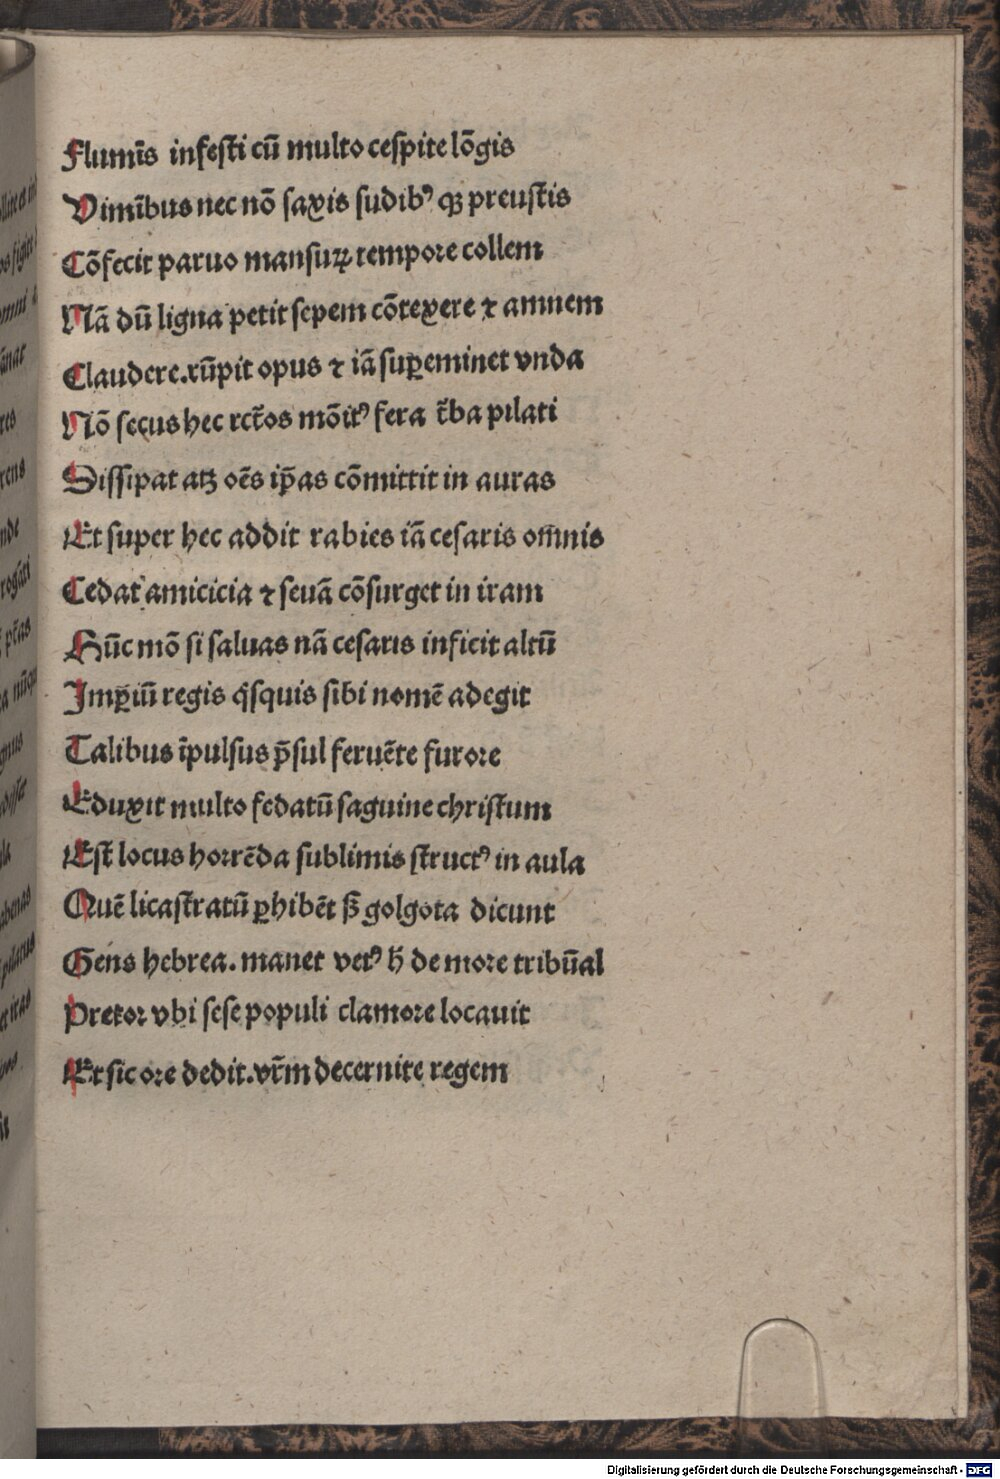 Flumīs infesti cū multo cespite lōgis
Vimībus nec nō saxis sudibꝰ qꝫ preustis
Cōfecit paruo mansuꝝ tempore collem
Nā dū ligna petit sepem cōtexere ⁊ amnem
Claudere.rūpit opus ⁊ iā suꝑeminet vnda
Nō secus hec rct̄os mōitꝰ fera t̄ba pilati
Dissipat atꝫ oēs ip̄as cōmittit in auras
Et super hec addit rabies iā cesaris om̄nis
Cedat amicicia ⁊ seuā cōsurget in iram
Hūc mō si saluas nā cesaris inficit altū
Imꝑiū regis q̇squis sibi nomē adegit
Talibus īpulsus p̄sul feruēte furore
Eduxit multo fedatū saguine christum
Est̄ locus horrēda sublimis structꝰ in aula
Quē licastratū ꝑhibēt s̄ golgota dicunt
Gens hebrea. manet vetꝰ h̄ de more tribūal
Pretor vbi sese populi clamore locauit
Et sic ore dedit.vr̄m decernite regem
Digitalisierung gefördert durch die Deutsche Forschungsgemeinschaft - DFG